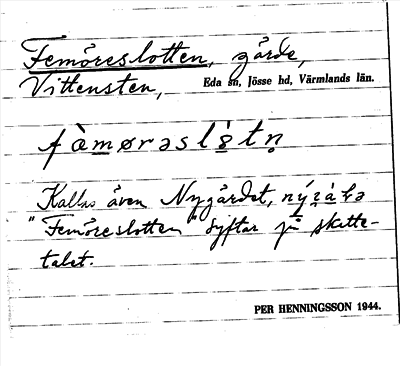 Femöreslotten, gärde,
Vittensten, Eda sn, Jösse hd, Värmlands län.
fæ̀mørəslò̤tn̥
Kallas även Nygärdet,
"Femöreslotten" syftar på skatte-
talet.
PER HENNINGSSON 1944.